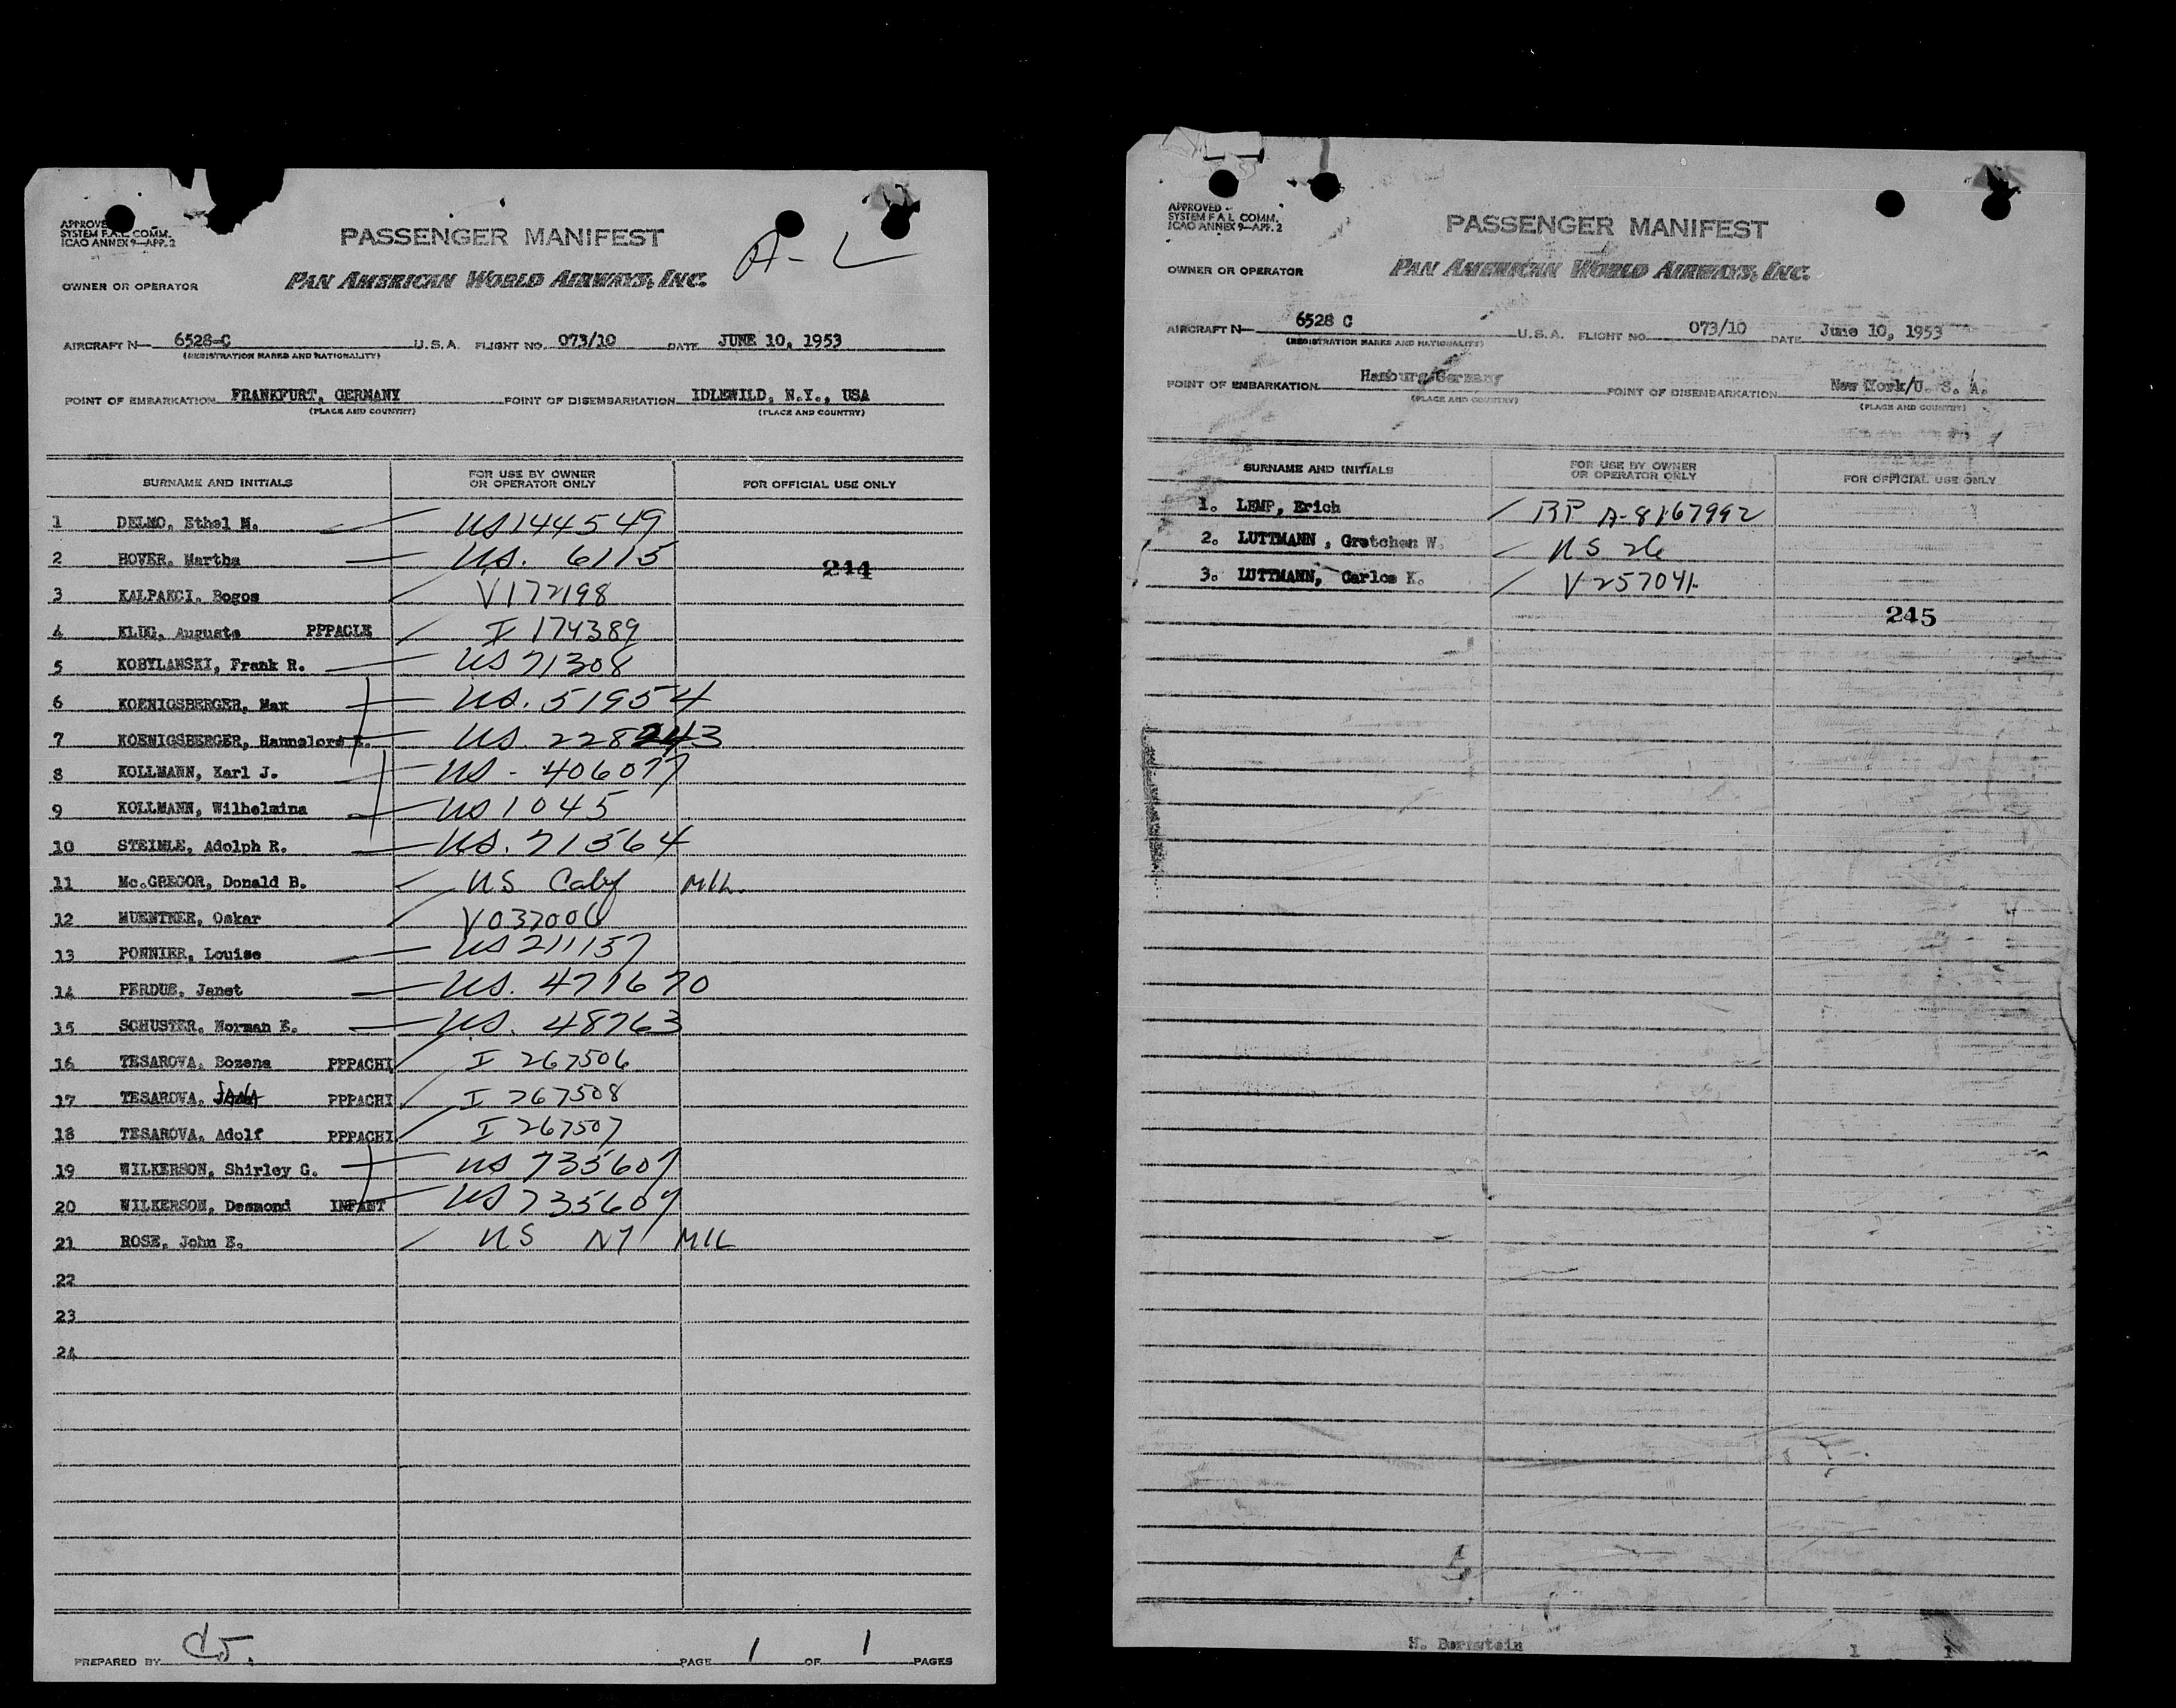 APPROVED
SYSTEM F.A.L. COMM.
ICAO ANNEX 9—APP. 2
PASSENGER MANIFEST
A-L
OWNER OR OPERATOR PAN AMERICAN WORLD AIRWAYS, INC.
AIRCRAFT N— 6528-C U.S.A. FLIGHT NO. 073/10 DATE JUNE 10, 1953
(REGISTRATION MARKS AND NATIONALITY)
POINT OF EMBARKATION FRANKFURT, GERMANY POINT OF DISEMBARKATION IDLEWILD, N.Y., USA
(PLACE AND COUNTRY) (PLACE AND COUNTRY)
SURNAME AND INITIALS FOR USE BY OWNER OR OPERATOR ONLY FOR OFFICIAL USE ONLY
1 DELMO, Ethel M. US144549
2 HOVER, Martha US. 6115 244
3 KALPAKCI, Bogos V172198
4 KLUG, Auguste PPPACLE I 174389
5 KOBYLANSKI, Frank R. US71308
6 KOENIGSBERGER, Max US. 51954
7 KOENIGSBERGER, Hannelore US. 228243
8 KOLLMANN, Karl J. US - 406077
9 KOLLMANN, Wilhelmina US1045
10 STEIMLE, Adolph R. US. 71564
11 Mc.GREGOR, Donald B. US MIL.
12 MUENTNER, Oskar V037006
13 PONNIER, Louise US211157
14 PERDUE, Janet US. 471670
15 SCHUSTER, Norman E. US. 48763
16 TESAROVA, Bozena PPPACHI I 267506
17 TESAROVA, JANA PPPACHI I 267508
18 TESAROVA, Adolf PPPACHI I 267507
19 WILKERSON, Shirley G. US 735607
20 WILKERSON, Desmond INFANT US 735607
21 ROSE, John E. US NY MIL
22
23
24
PREPARED BY PAGE 1 OF 1 PAGES
APPROVED
SYSTEM F.A.L. COMM.
ICAO ANNEX 9—APP. 2
PASSENGER MANIFEST
OWNER OR OPERATOR PAN AMERICAN WORLD AIRWAYS, INC.
AIRCRAFT N— 6528 C U.S.A. FLIGHT NO. 073/10 DATE June 10, 1953
(REGISTRATION MARKS AND NATIONALITY)
POINT OF EMBARKATION Hamburg/Germany POINT OF DISEMBARKATION New York/U. S. A.
(PLACE AND COUNTRY) (PLACE AND COUNTRY)
SURNAME AND INITIALS FOR USE BY OWNER OR OPERATOR ONLY FOR OFFICIAL USE ONLY
1. LEMP, Erich RP A-8167992
2. LUTTMANN, Gretchen W. US 26
3. LUTTMANN, Carlos K. V 257041
245
H. Bernstein 1 1